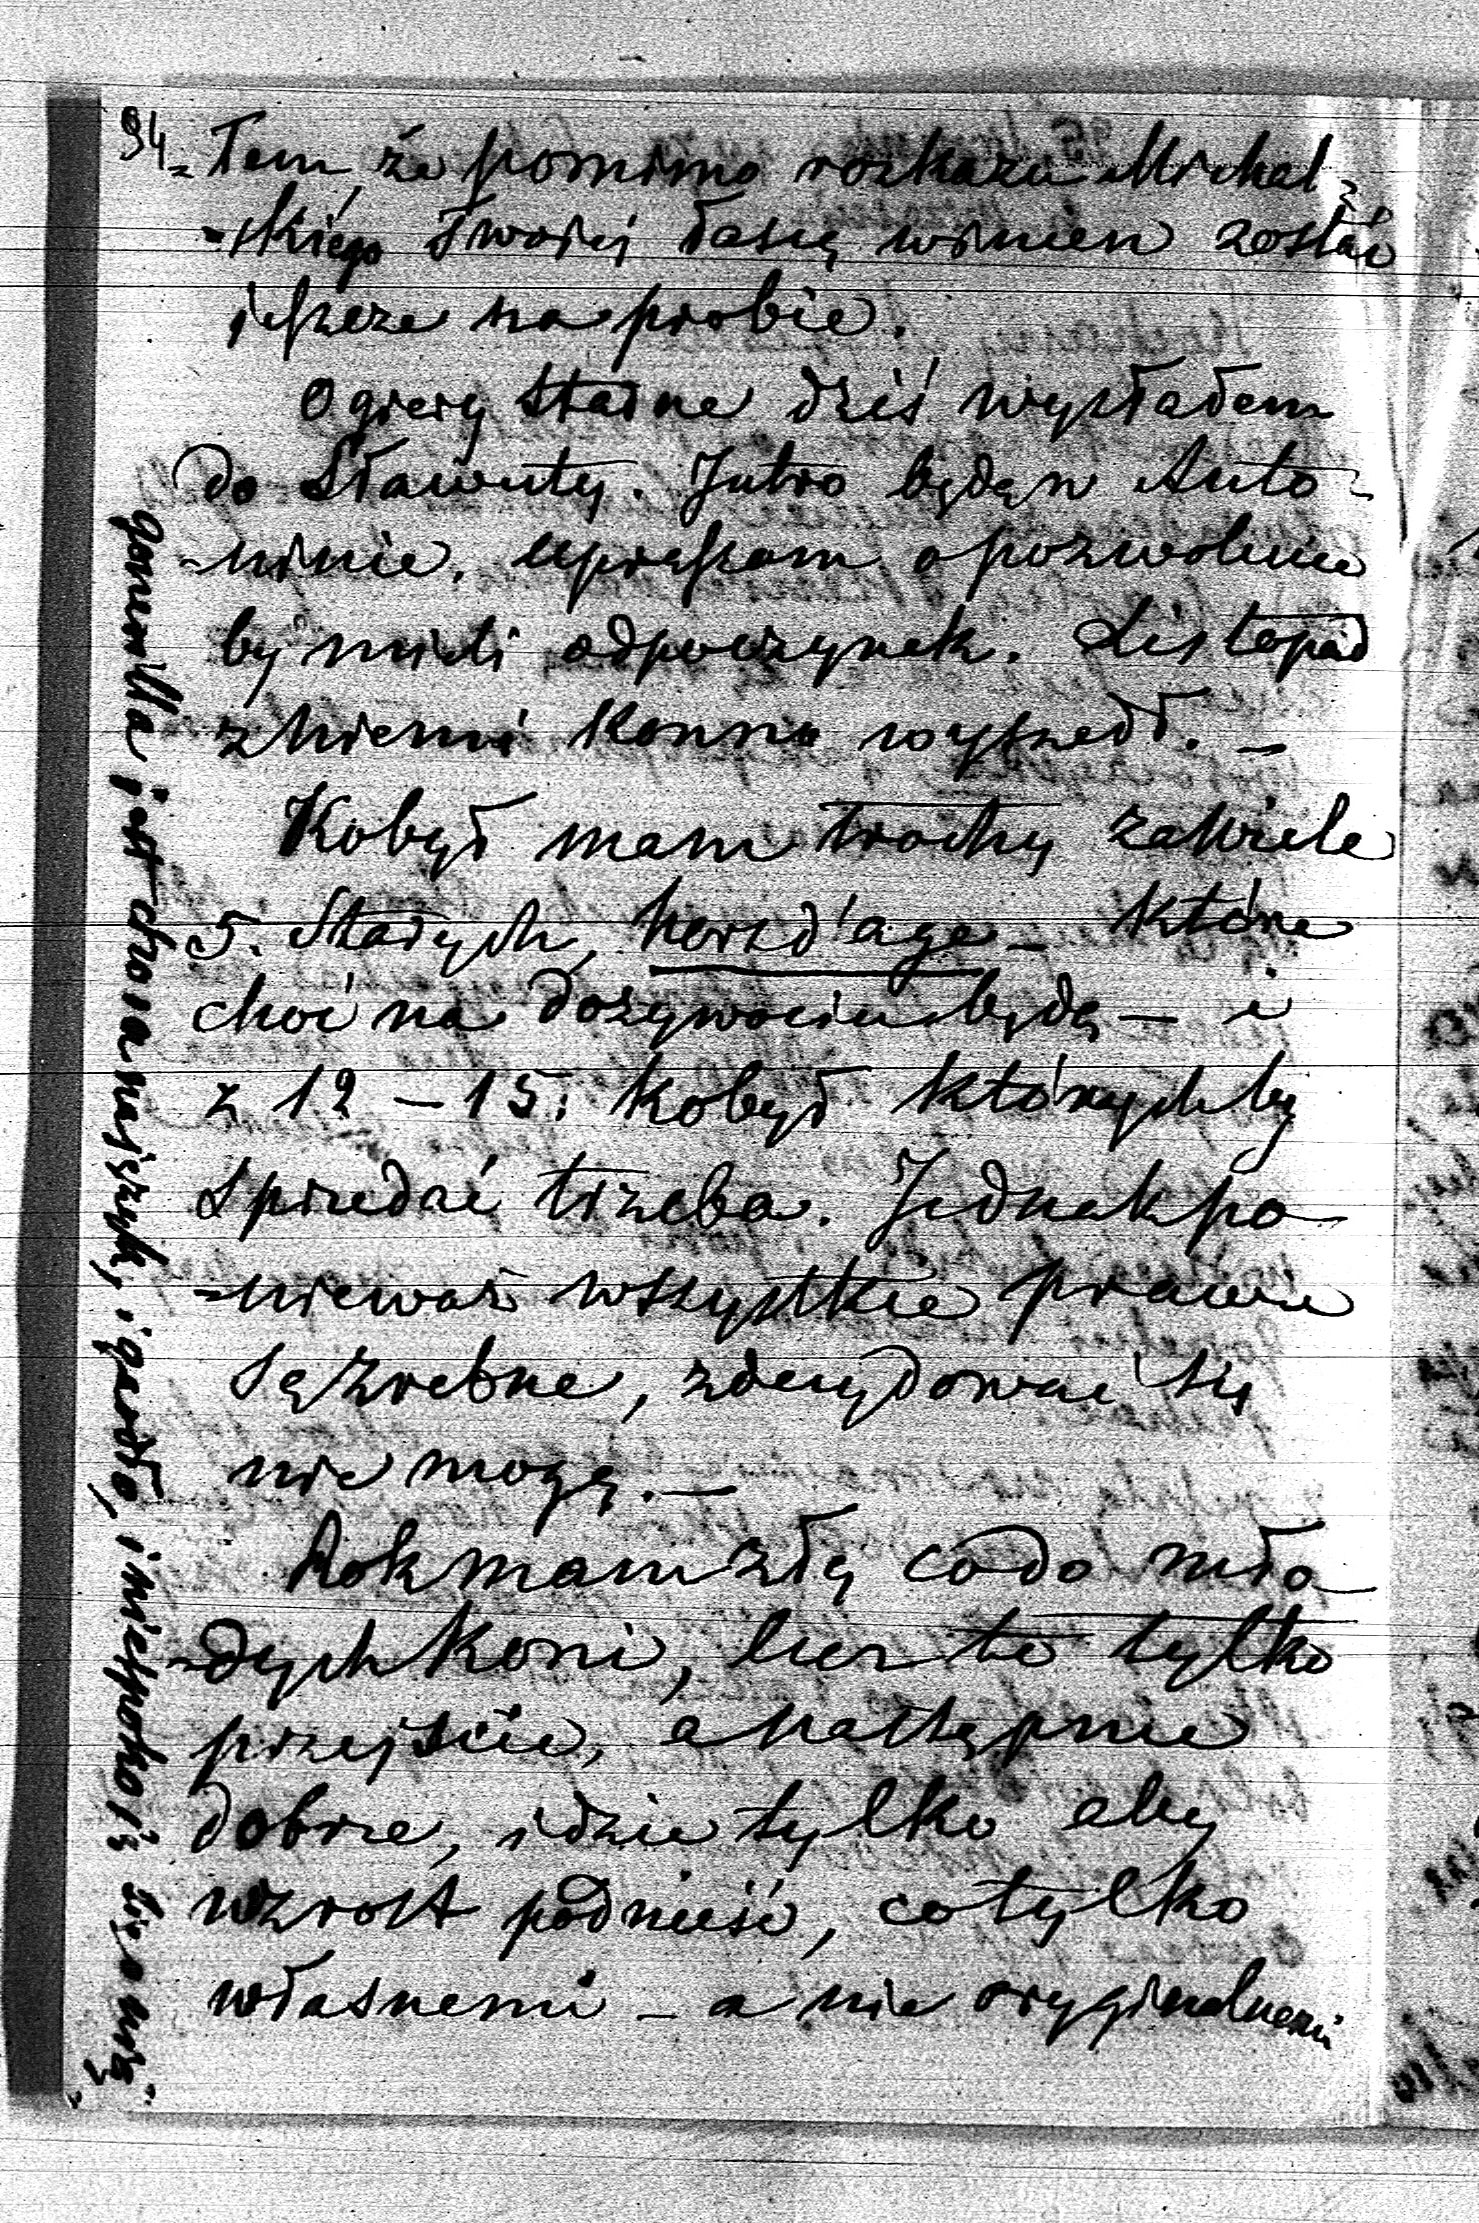 94.
Tem że pomimo rozkazu Michal-
-skiego Twojej łasię winien zostać
jeszcze na probie.
Ogiery stadne dziś wysłałem
do Sławuty. Jutro będą w Anto-
-ninie, upraszam o pozwolenie
by mieli odpoczynek. Listopad
z niemi konno wyszedł. –
Kobył mam trochę zawiele
5. Starych, hors d'age – które
choć na dożywociu będą – i
z 12 – 15. kobył którychby
sprzedać trzeba. Jednak po-
-nieważ wszystkie prawie
są zrebne, zdecydować się
nie mogę. –
Rok mam zły co do mło-
-dych koni, lecz to tylko
przejście, a następnie
dobrze, idzie tylko aby
wzrost podnieść, co tylko
własnemi – a nie oryginalnemi
jest chora na i gardło, i